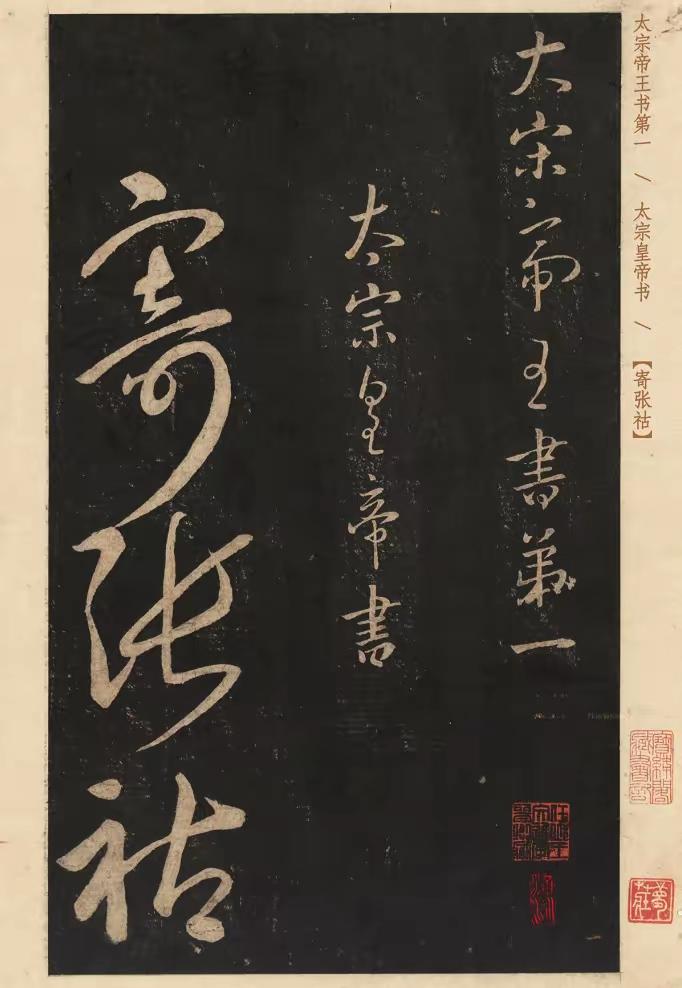 太宗帝王书第一 \ 太宗皇帝书 \ 【寄张祜】
大宋帝王書第一
太宗皇帝書
寄張祜